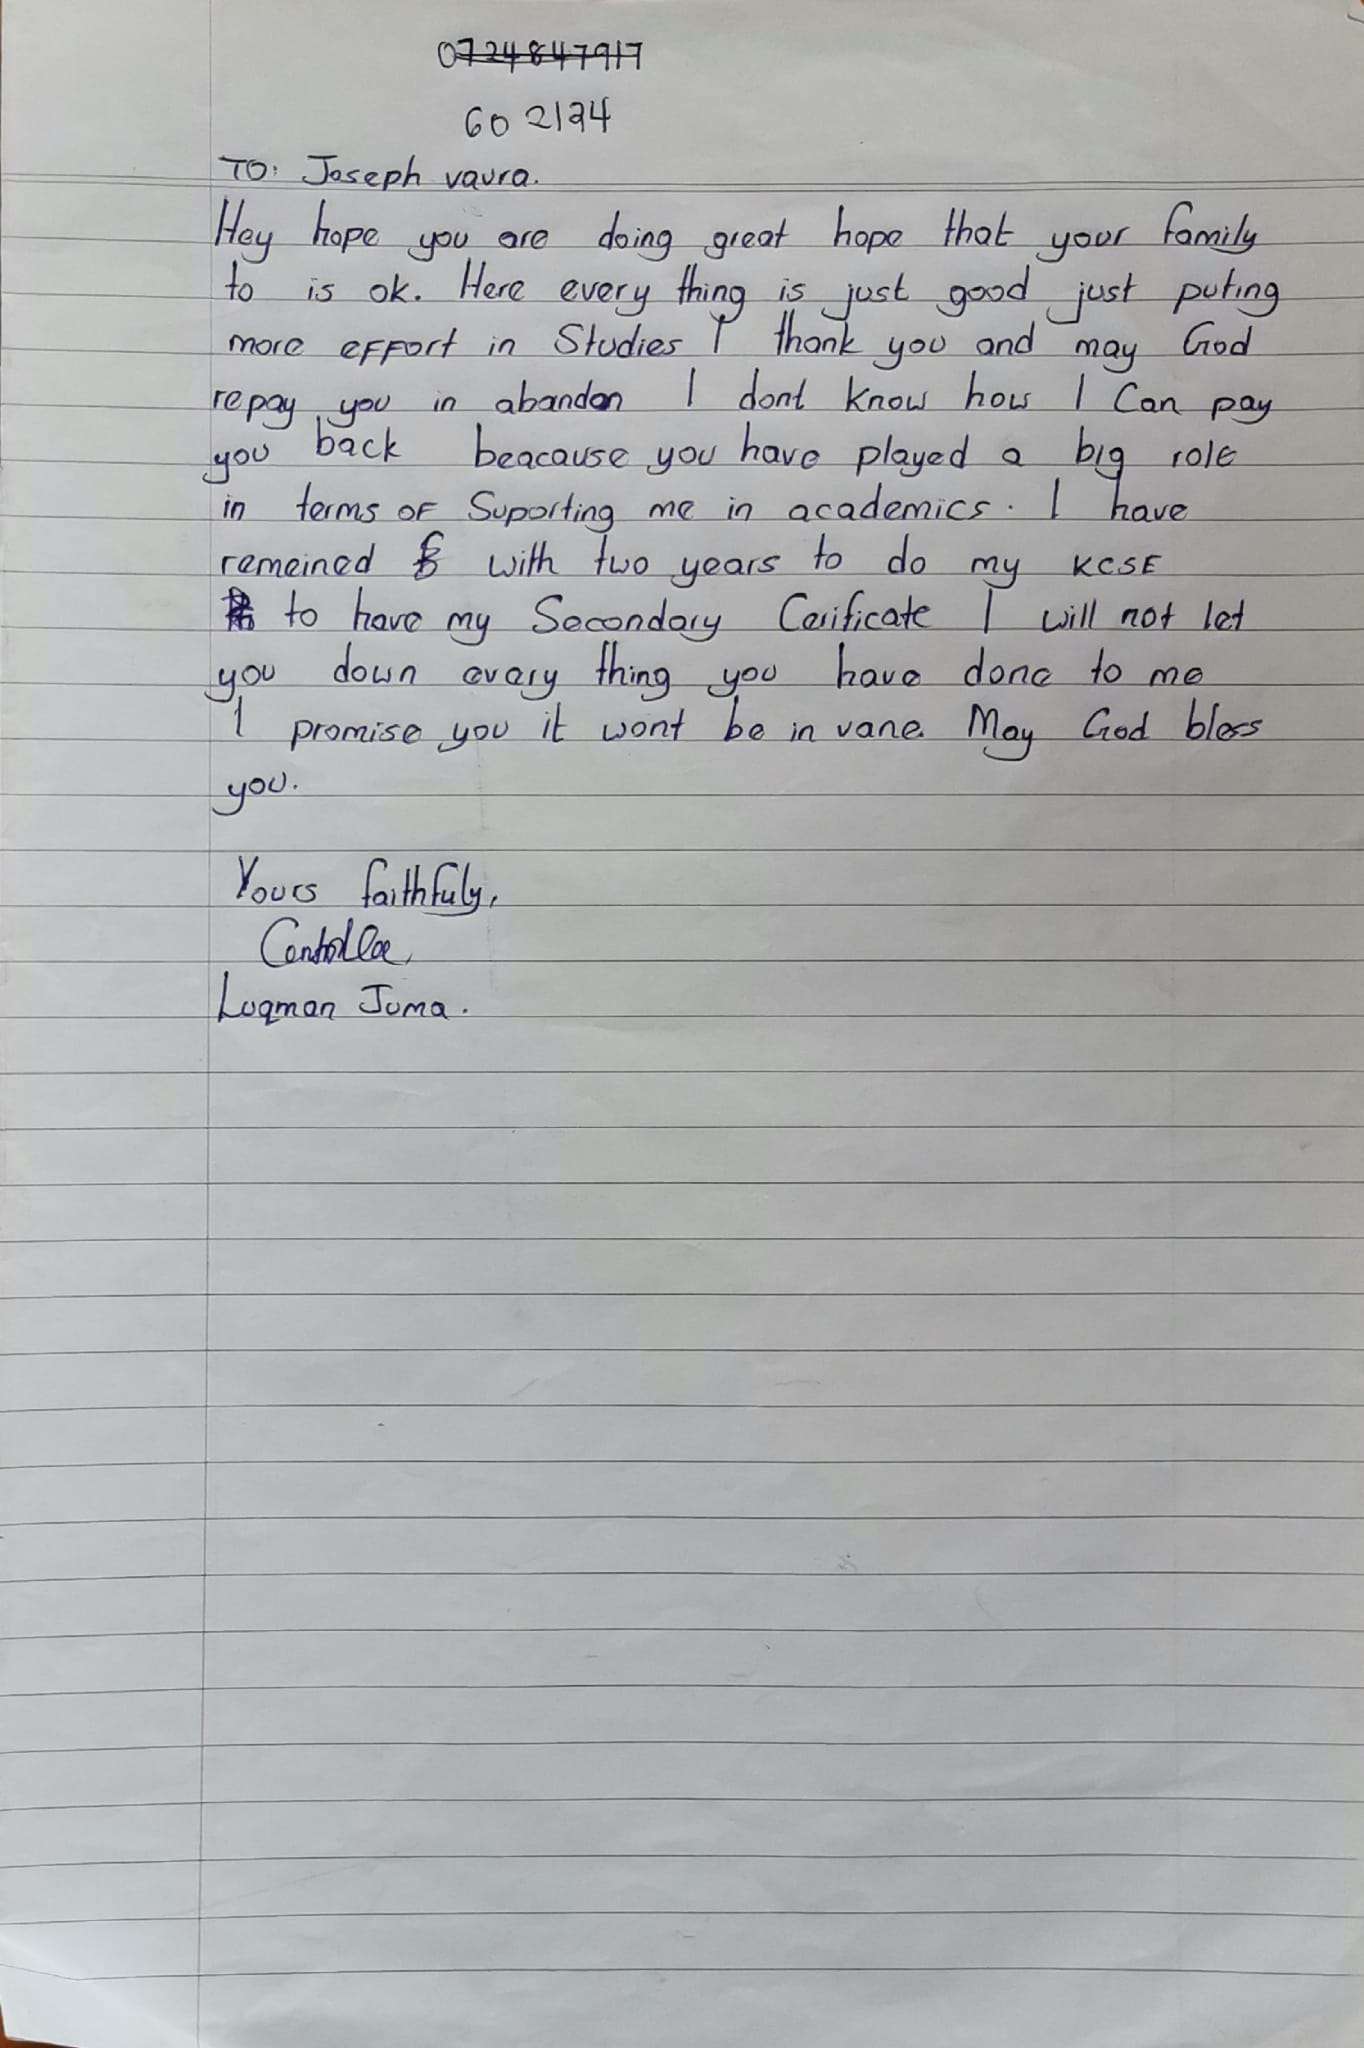 0724847917
60 2124
TO: Joseph vavra.
Hey hope you are doing great hope that your family
to is ok. Here every thing is just good just puting
more effort in Studies I thank you and may God
repay you in abandon I dont know how I Can pay
you back beacause you have played a big role
in terms of Suporting me in academics. I have
remeined with two years to do my KCSE
to have my Secondary Cerificate I will not let
you down every thing you have done to me
I promise you it wont be in vane. May God bless
you.
Yours faithfuly,
Luqman Juma.